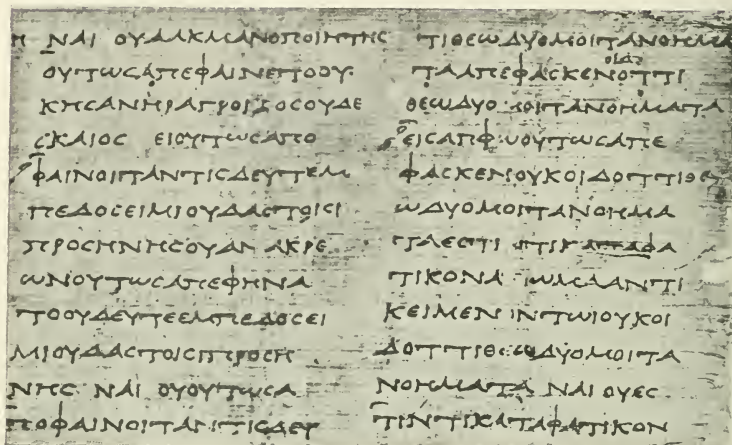 ΝΑΙ ΟΥΑΛΚΜΑΝΟΠΟΙΗΤΗϹ
ΟΥΤΩϹΑΠΕΦΑΙΝΕΤΟΟΥ
ΚΗϹΑΝΗΡΑΓΡΟΙΚΟϹΟΥΔΕ
ϹΚΑΙΟϹ ΕΙΟΥΤΩϹΑΠΟ
ΦΑΙΝΟΙΤΑΝΤΙϹΔΕΥΤΕΜ
ΠΕΔΟϹΕΙΜΙΟΥΔΑϹΤΟΙϹΙ
ΠΡΟϹΗΝΗϹΟΥΑΝ ΑΚΡΕ
ΩΝΟΥΤΩϹΑΠΕΦΗΝΑ
ΤΟΟΥΔΕΥΤΕΕΜΠΕΔΟϹΕΙ
ΜΙΟΥΔΑϹΤΟΙϹΠΡΟϹΗ
ΝΗϹ ΝΑΙ ΟΥΟΥΤΩϹΑ
ΠΟΦΑΙΝΟΙΤΑΝΤΙϹΔΕΥ
ΤΙΘΕΩΔΥΟΜΟΙΤΑΝΟΗΜΑ
ΤΑΑΠΕΦΑϹΚΕΝΟΤΤΙ
ΘΕΩΔΥΟ ΜΟΙΤΑΝΟΗΜΑΤΑ
ΟΥΤΩϹΑΠΕ
ΦΑϹΚΕΝΟΥΚΟΙΔΟΤΤΙΘΕ
ΩΔΥΟΜΟΙΤΑΝΟΗΜΑ
ΤΑΕϹΤΙ ΤΙΚΑΤΑΦΑ
ΤΙΚΟΝΑ ΙΩΜΑΑΝΤΙ
ΚΕΙΜΕΝ ΝΤΩΙΟΥΚΟΙ
ΔΟΤΤΙΘΕΩΔΥΟΜΟΙΤΑ
ΝΟΗΜΑΤΑ ΝΑΙ ΟΥΕϹ
ΤΙΝΤΙΚΑΤΑΦΑΤΙΚΟΝ